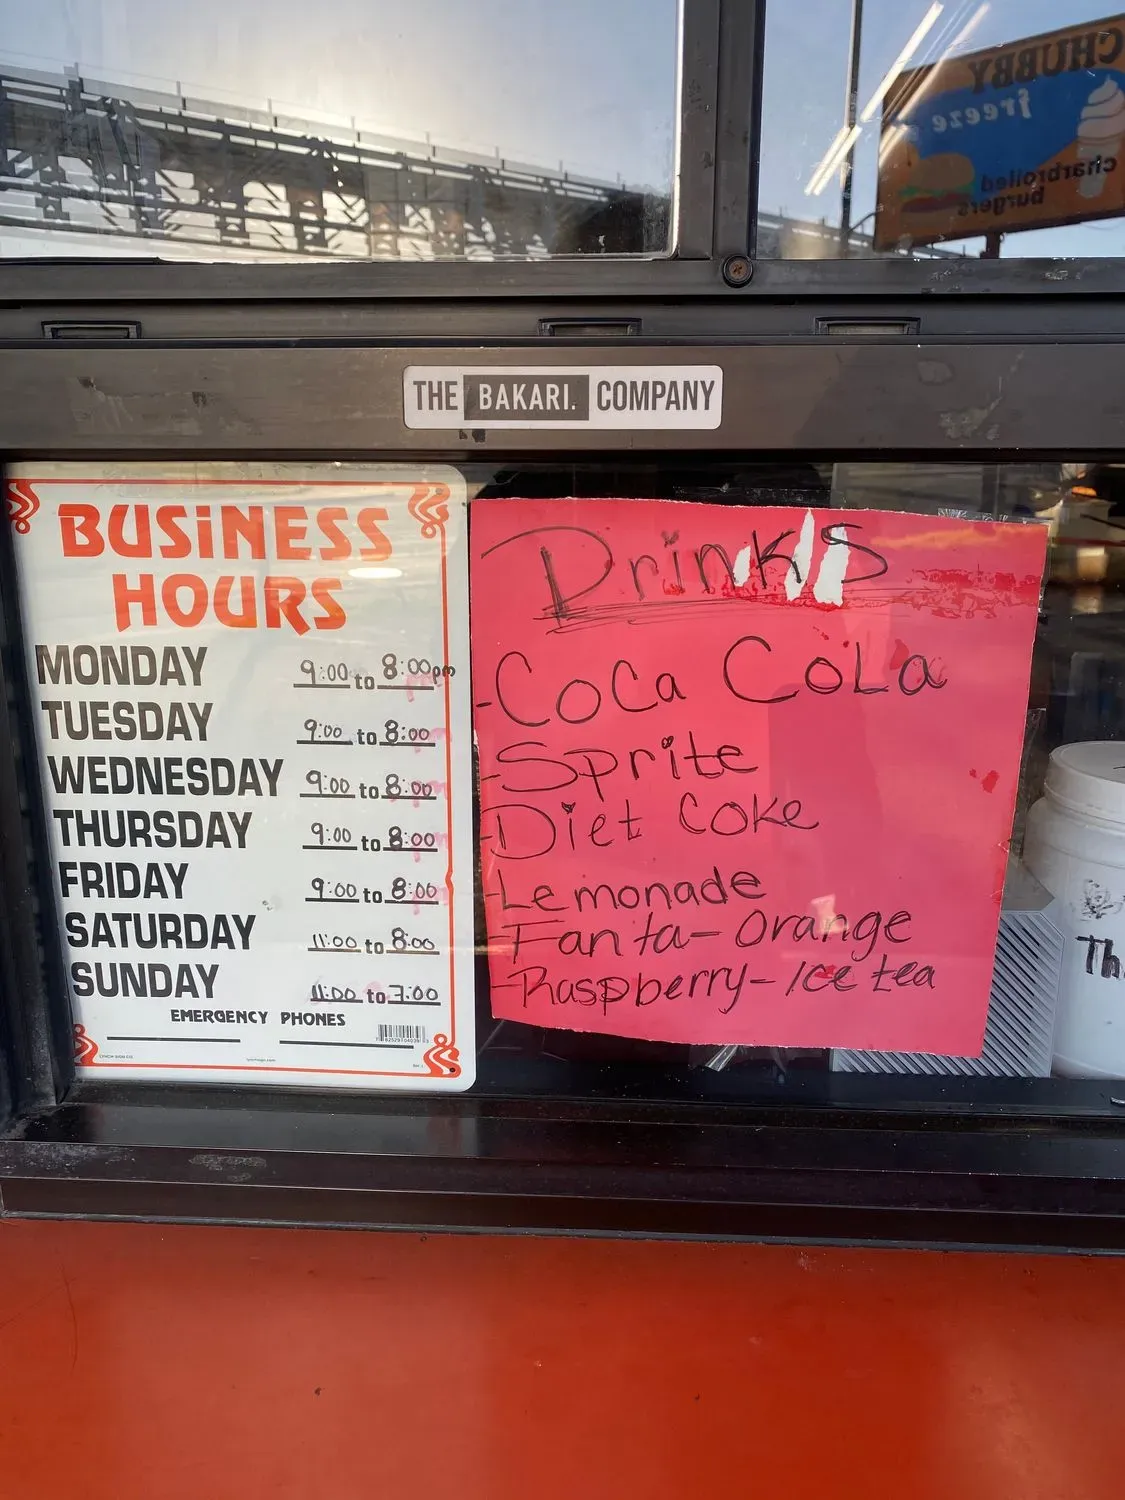 CHUBBY
freeze
charbroiled
burgers
THE BAKARI. COMPANY
BUSINESS
HOURS
MONDAY 9:00 to 8:00pm
TUESDAY 9:00 to 8:00
WEDNESDAY 9:00 to 8:00
THURSDAY 9:00 to 8:00
FRIDAY 9:00 to 8:00
SATURDAY 11:00 to 8:00
SUNDAY 11:00 to 7:00
EMERGENCY PHONES
Drinks
-Coca Cola
-Sprite
-Diet Coke
-Lemonade
-Fanta-Orange
-Raspberry-Ice tea
Th